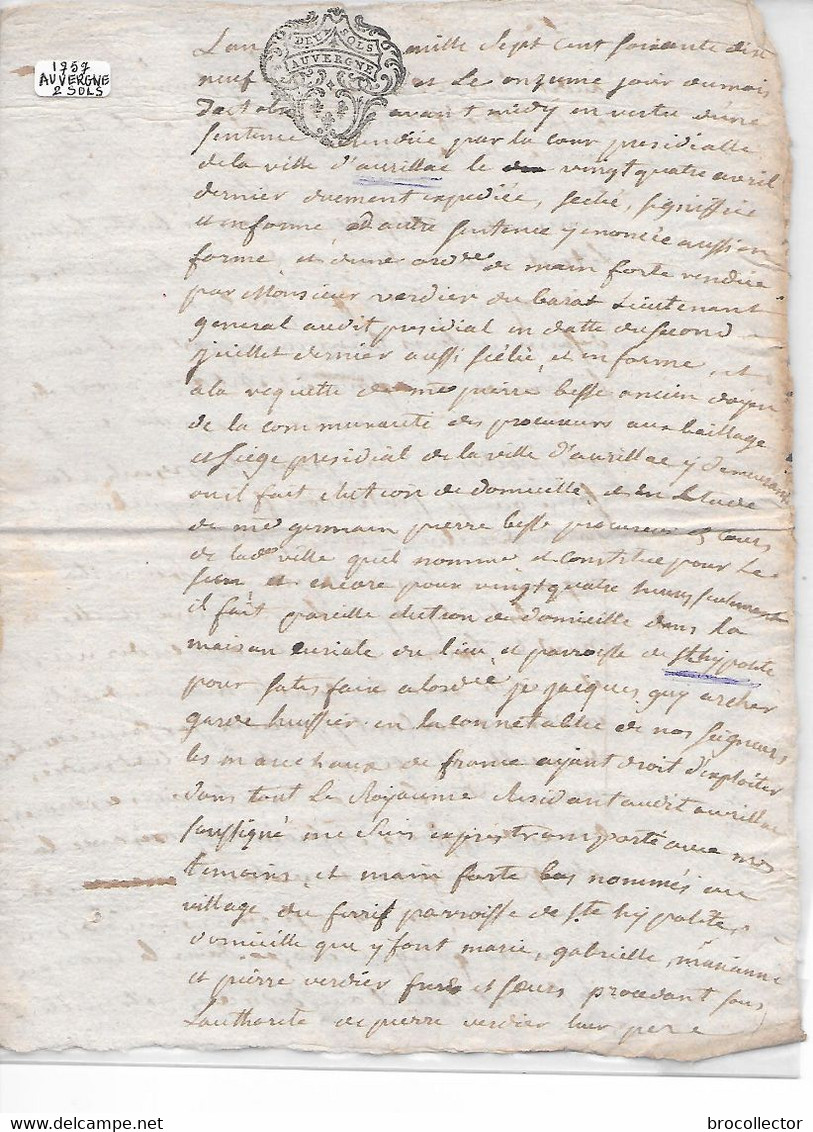 1757
AUVERGNE
2 SOLS
DEUX SOLS
AUVERGNE
L'an mille Sept cent soixante dix
neuf et Le onzieme jour du mois
avant midy en vertu d'une
sentence rendüe par la cour presidialle
de la ville d'aurillac le vingt quatre avril
dernier duement expediée, scelé, signiffiée
et en forme d'autre sentence y enoncée aussi en
forme, et d'une ord.ce de main forte rendüe
par Monsieur verdier du barat Lieutenant
general audit presidial en datte du second
juillet dernier aussi scélée, et en forme, et
a la requette de me pierre besse ancien doyen
de la communauté des procureurs aux bailliage
et siége presidial de la ville d'aurillac y demeurant
ou il fait election de domicille, et en Letude
de me germain pierre besse procureur es cours
de lad. ville quil nomme et constitue pour Le
sien et encore pour vingt quatre heures seulement
il fait pareille election de domicille dans la
maison curiale du lieu et parroisse de st hypolite
pour satisfaire a lord.ce je jacques guy archer
garde huissier en la connetablie de nos seigneurs
les marechaux de france ayant droit d'exploiter
dans tout Le Royaume Residant audit aurillac
soussigné me suis exprés transporté avec mes
temoins, et main forte bas nommés au
village du parroisse de ste hypolite,
domicille que y font marie, gabrielle, marianne
et pierre verdier frere et sœurs procedant sous
L'authorité de pierre verdier leur pere
brocollector